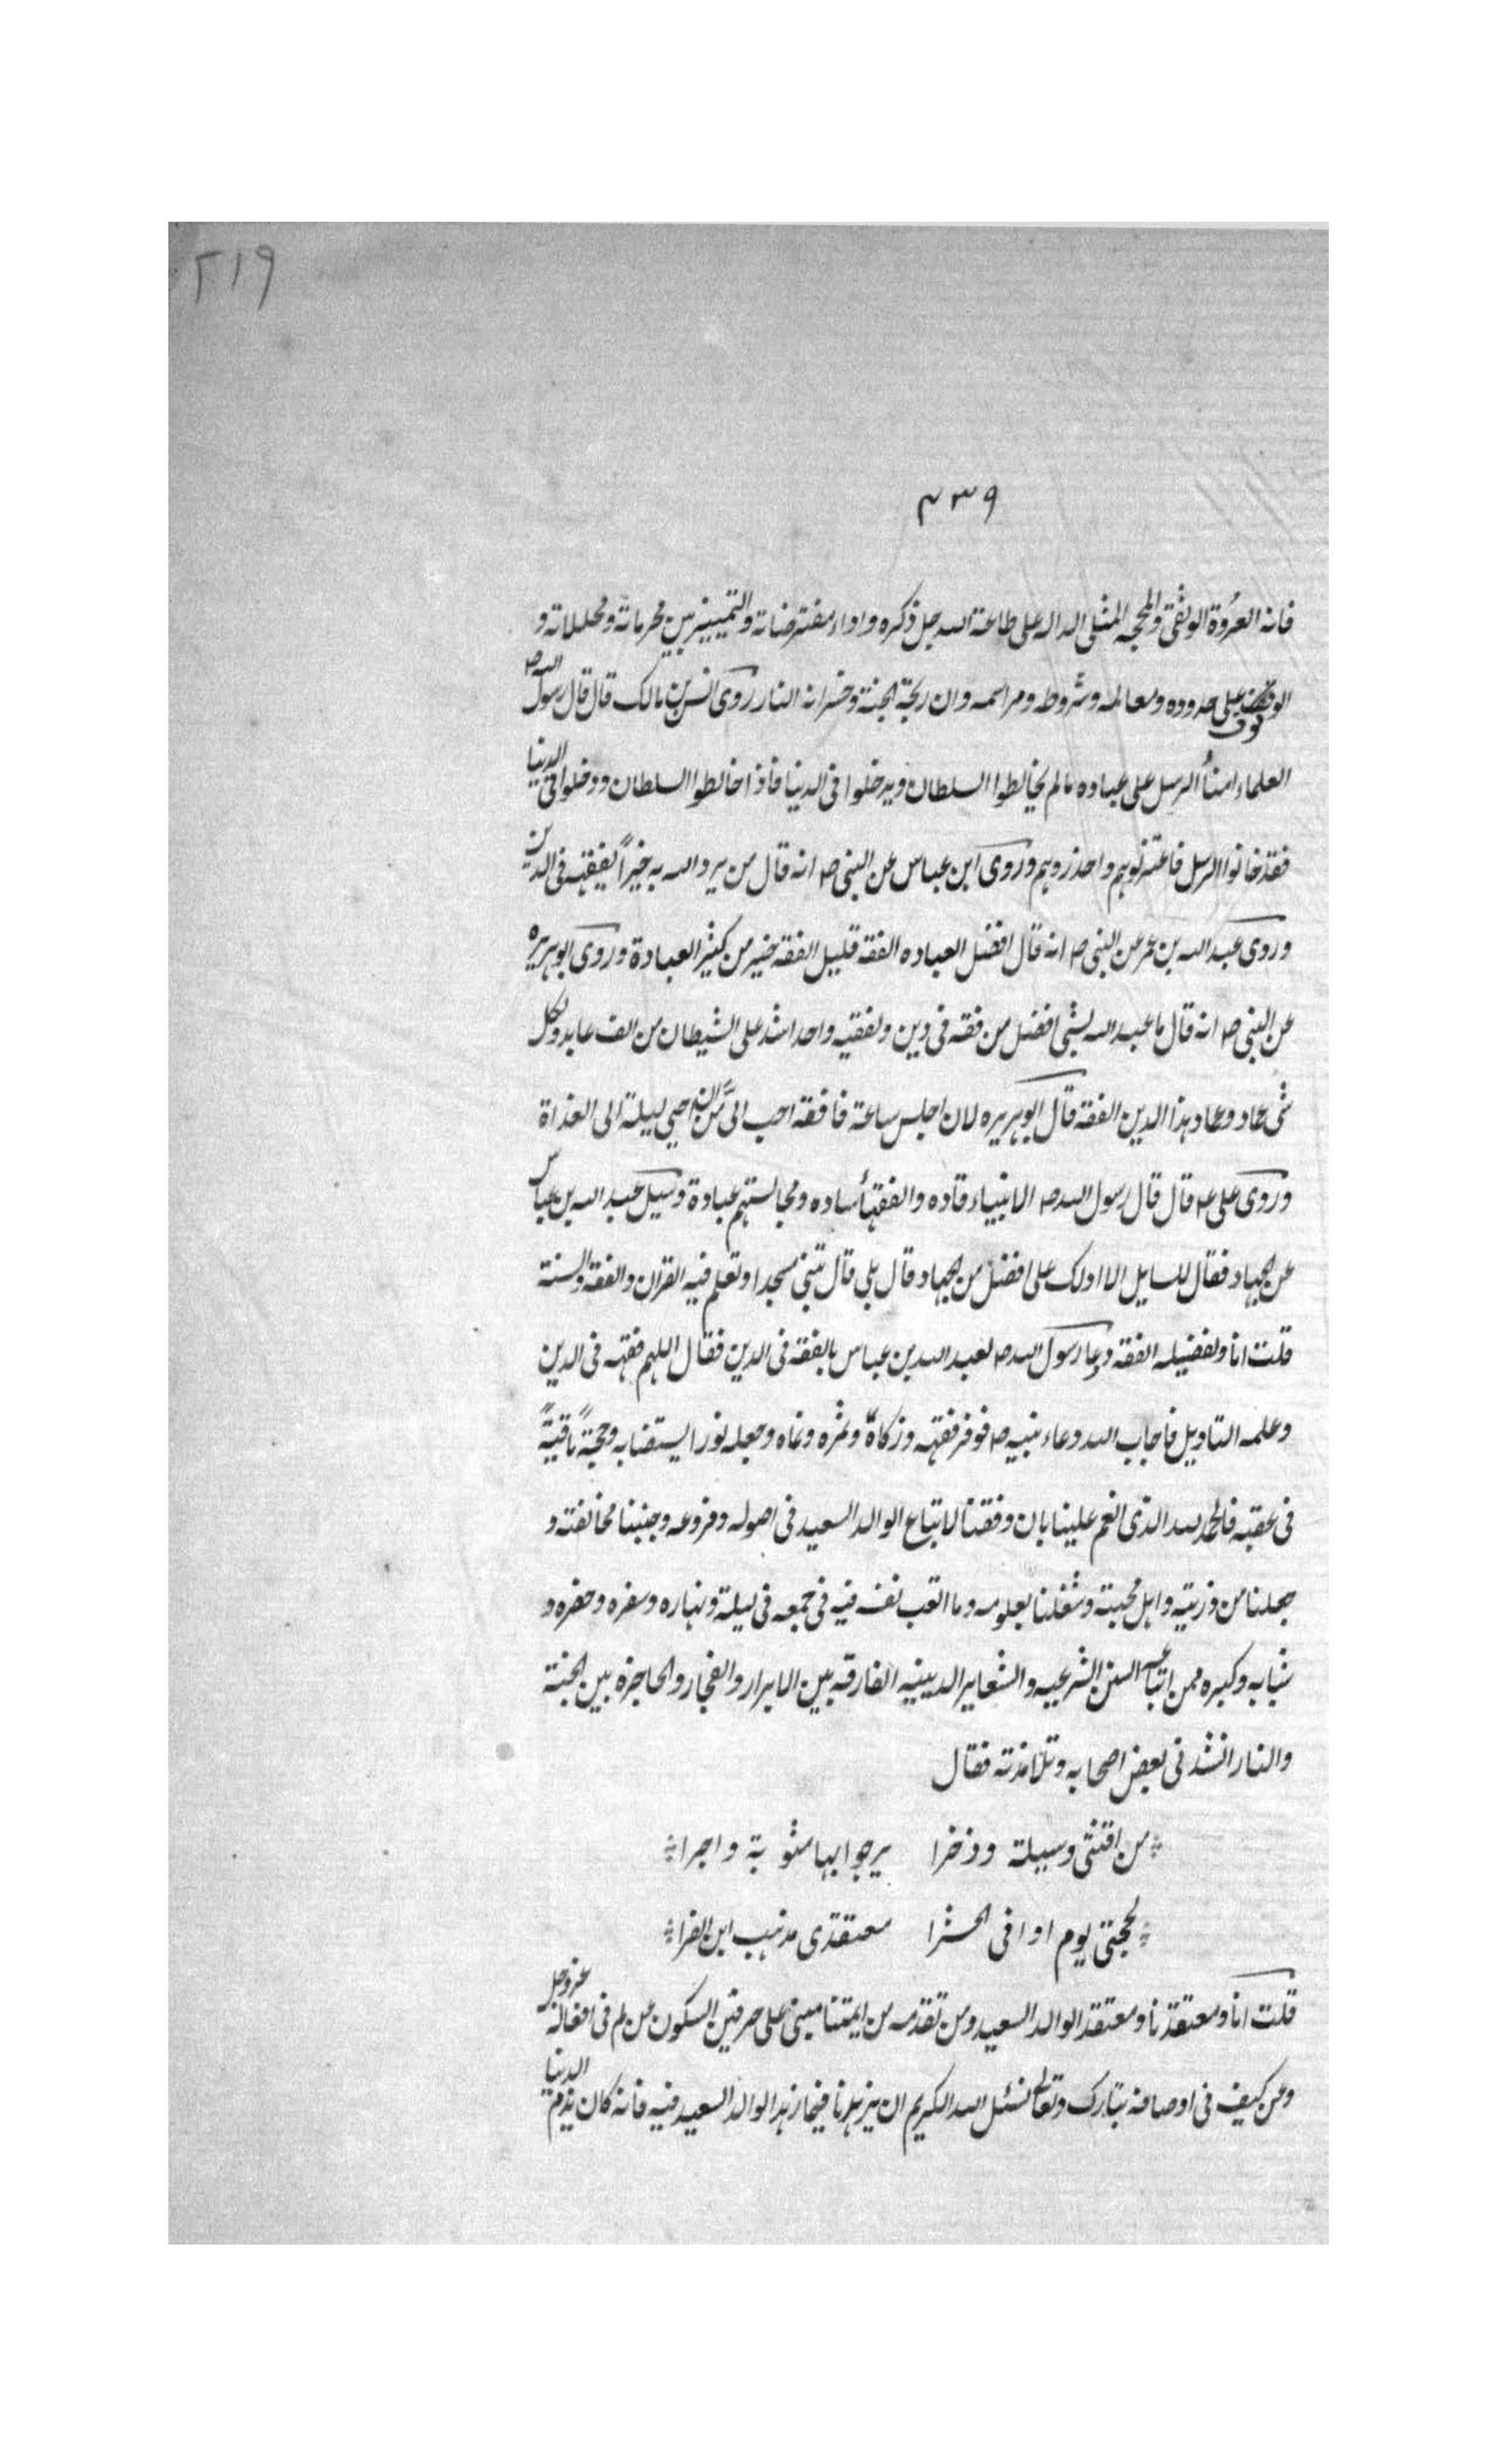 ٢١٩
٤٣٩
فانه العروة الوثقى والمحجه المثلى الداله على طاعة الله جل ذكره واداء مفترضاته والتمييز بين محرماته ومحللاته و
الوقوف على حدوده ومعالمه وشروطه ومراسمه وان ريحه الجنة وخسرانه النار روى انس بن مالك قال قال رسول الله ص
العلماء امنأ الرسل على عباده مالم يخالطوا السلطان ويدخلوا فى الدنيا فاذا خالطوا السلطان ودخلوا فى الدنيا
فقد خانوا الرسل فاعتزلوهم واحذروهم وروى ابن عباس عن النبى ص انه قال من يرد الله به خيراً يفقهه فى الدين
وروى عبد الله بن عمر عن النبى ص انه قال افضل العباده الفقه قليل الفقه خير من كثير العبادة وروى ابوهريره
عن النبى ص انه قال ما عبد الله بشى افضل من فقه فى دين ولفقيه واحد اشد على الشيطان من الف عابد ولكل
شى عماد وعماد هذا الدين الفقه قال ابوهريره لان اجلس ساعة فافقه احب الىَّ من ان احيي ليلة الى الغداة
وروى على ع قال قال رسول الله ص الانبياء قاده والفقهأ ساده ومجالستهم عبادة وسيل عبد الله بن عباس
عن الجهاد فقال للسايل الا ادلك على افضل من الجهاد قال بلى قال تبنى مسجدا وتعلم فيه القران والفقه والسنة
قلت انا ولفضيله الفقه دعا رسول الله ص لعبد الله بن عباس بالفقه فى الدين فقال اللهم فقهه فى الدين
وعلمه التاويل فاجاب الله دعاء نبيه ص فوفر فقهه وزكاهٌ وثمره ونماه وجعله نورا يستضابه وحجةً باقيةً
فى عقبه فالحمد لله الذى انعم علينا بان وفقنا لاتباع الوالد السعيد فى اصوله وفروعه وجنبنا مخالفته و
جعلنا من ذريته واهل محبته وشغلنا بعلومه وما اتعب نفسه فيه فى جمعه فى ليله ونهاره وسفره وحضره و
شبابه وكبره ممن اتباعه السنن الشرعيه والشعاير الدينيه الفارقه بين الابرار والفجار والحاجزة بين الجنة
والنار انشد نى بعض اصحابه وتلامذته فقال
من اقتنى وسيلة وذخرا يرجوا بها مثوبة واجرا
لحجتى يوم اوا فى الحشرا معتقدى مذهب ابن الفرا
قلت انا ومعتقدنا ومعتقد الوالد السعيد ومن تقدمه من ايمتنا مبنى على حرفين السكون عن لم فى افعاله عز وجل
وعن كيف فى اوصافه تبارك وتعالى نسئل الله الكريم ان يزهدنا فيما زهد الوالد السعيد فيه فانه كان يذم الدنيا